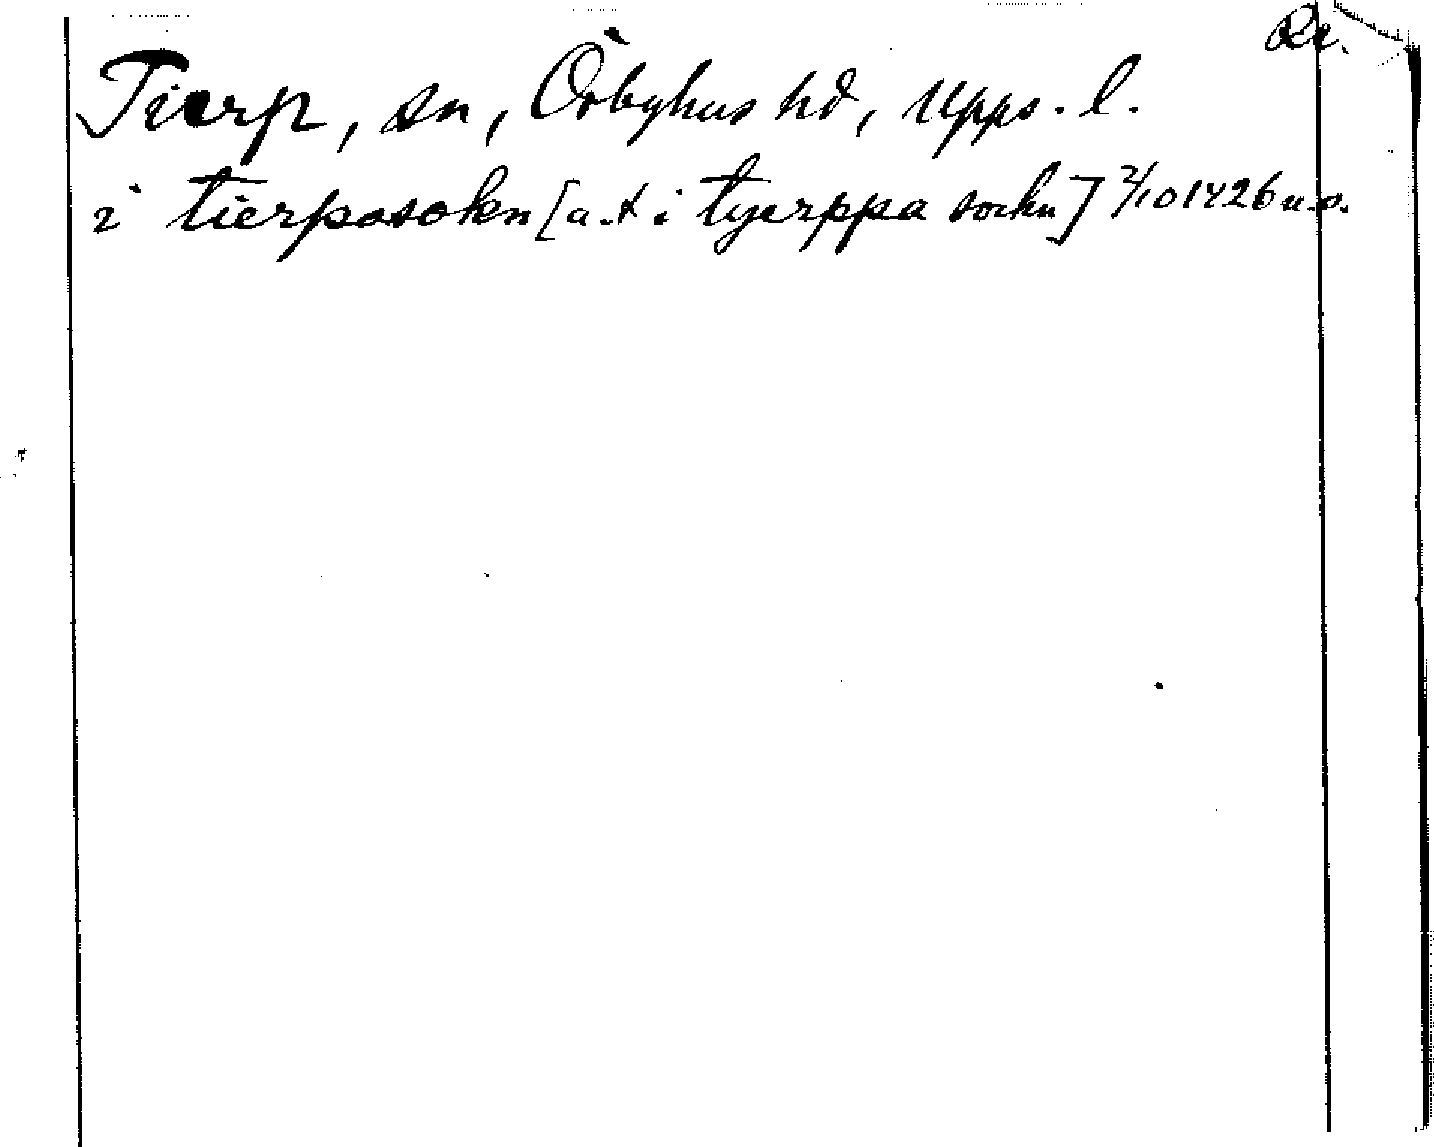 Tierp, sn, Örbyhus hd, Upps. l.
i tierpasokn [a.t i tyerppa sockn] 2/10 1426 u.o.